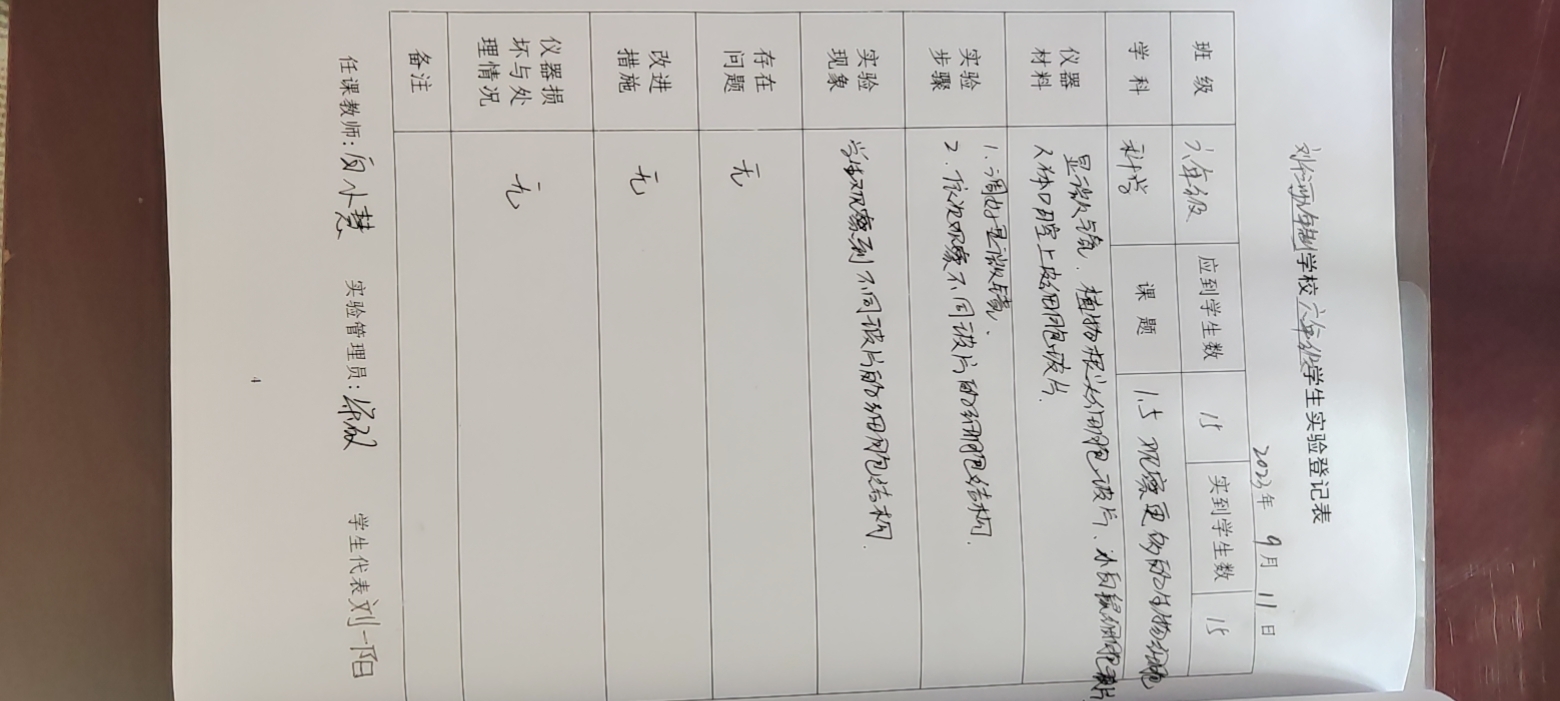 学校六年级学生实验登记表
2023年 9月 11日
班级 六年级 应到学生数 15 实到学生数 15
学科 科学 课题 1.5 观察更多的生物细胞
仪器材料 显微镜、植物根尖细胞玻片、
人体口腔上皮细胞玻片.
实验步骤 1.调好显微镜、
2.依次观察不同玻片的细胞结构.
实验现象 学生观察到不同玻片的细胞结构.
存在问题 无
改进措施 无
仪器损坏与处理情况 无
备注
任课教师: 小慧 实验管理员: 学生代表刘一阳